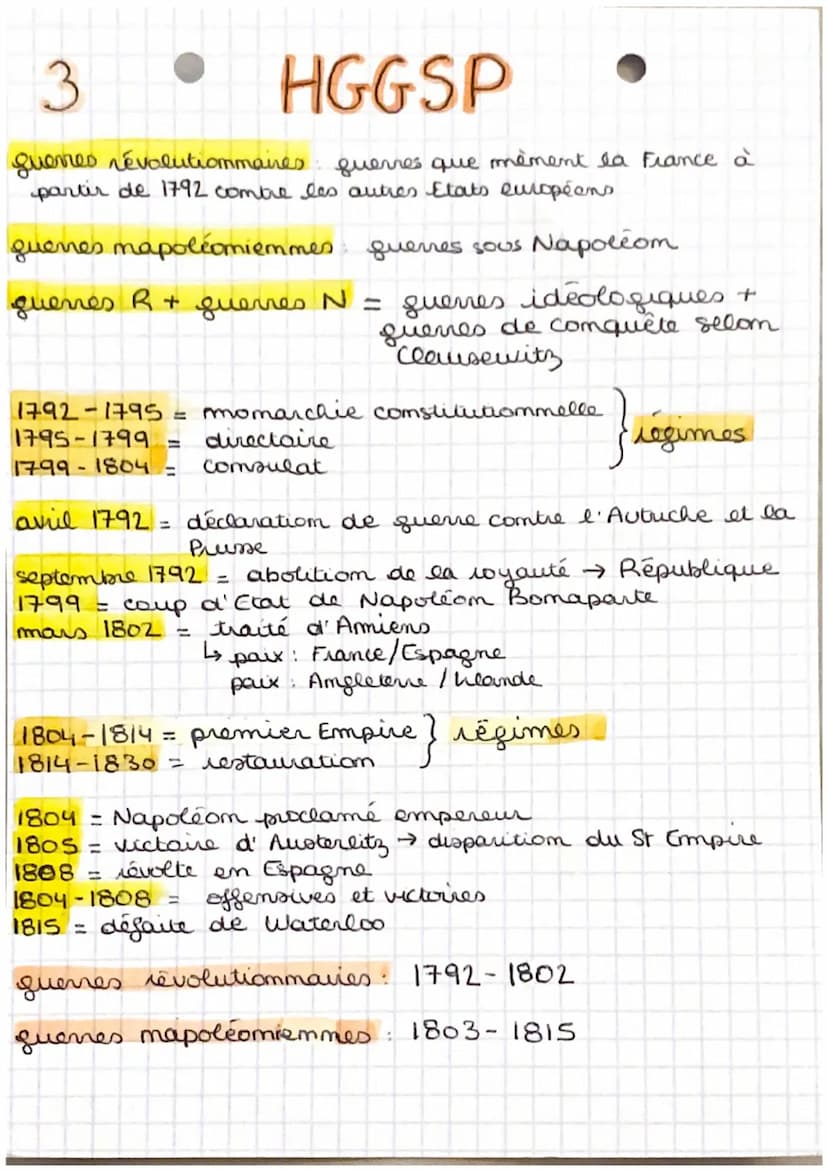 3 HGGSP
guerres révolutionnaires : guerres que mènent la France à
partir de 1792 contre les autres Etats européens
guerres napoléoniennes : guerres sous Napoléon
guerres R + guerres N = guerres idéologiques +
guerres de conquête selon
Clausewitz
1792-1795 = monarchie constitutionnelle
1795-1799 = directoire } régimes
1799-1804 = consulat
avril 1792 = déclaration de guerre contre l'Autriche et la
Prusse
septembre 1792 = abolition de la royauté → République
1799 = coup d'Etat de Napoléon Bonaparte
mars 1802 = traité d'Amiens
↳ paix : France/Espagne
paix : Angleterre/Irlande
1804-1814 = premier Empire } régimes
1814-1830 = restauration
1804 = Napoléon proclamé empereur
1805 = victoire d'Austerlitz → disparition du St Empire
1808 = révolte en Espagne
1804-1808 = offensives et victoires
1815 = défaite de Waterloo
guerres révolutionnaires : 1792-1802
guerres napoléoniennes : 1803-1815